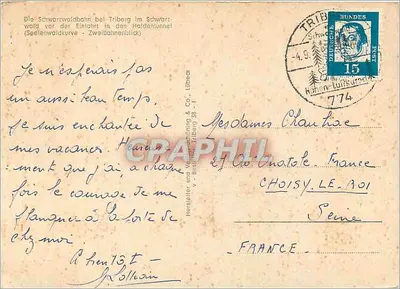 Die Schwarzwaldbahn bei Triberg im Schwarz-
wald vor der Einfahrt in den Haldentunnel
(Seelenwaldkurve - Zweibahnenblick)
Je n'espérais pas
un aussi beau temps.
Je suis enchantée de
mes vacances. Heureuse-
ment que j'ai à chaque
fois le courage de me
flanquer à la porte de
chez moi
A bientôt
Hersteller und
& Co., Lübeck
TRIBERG
-4.9.
Höhen-Luftkurort
774
DEUTSCHE BUNDESPOST
15
CPAPHIL
Mesdames Chauliac
27 Av. Anatole. France
CHOISY. LE. ROI
Seine
FRANCE